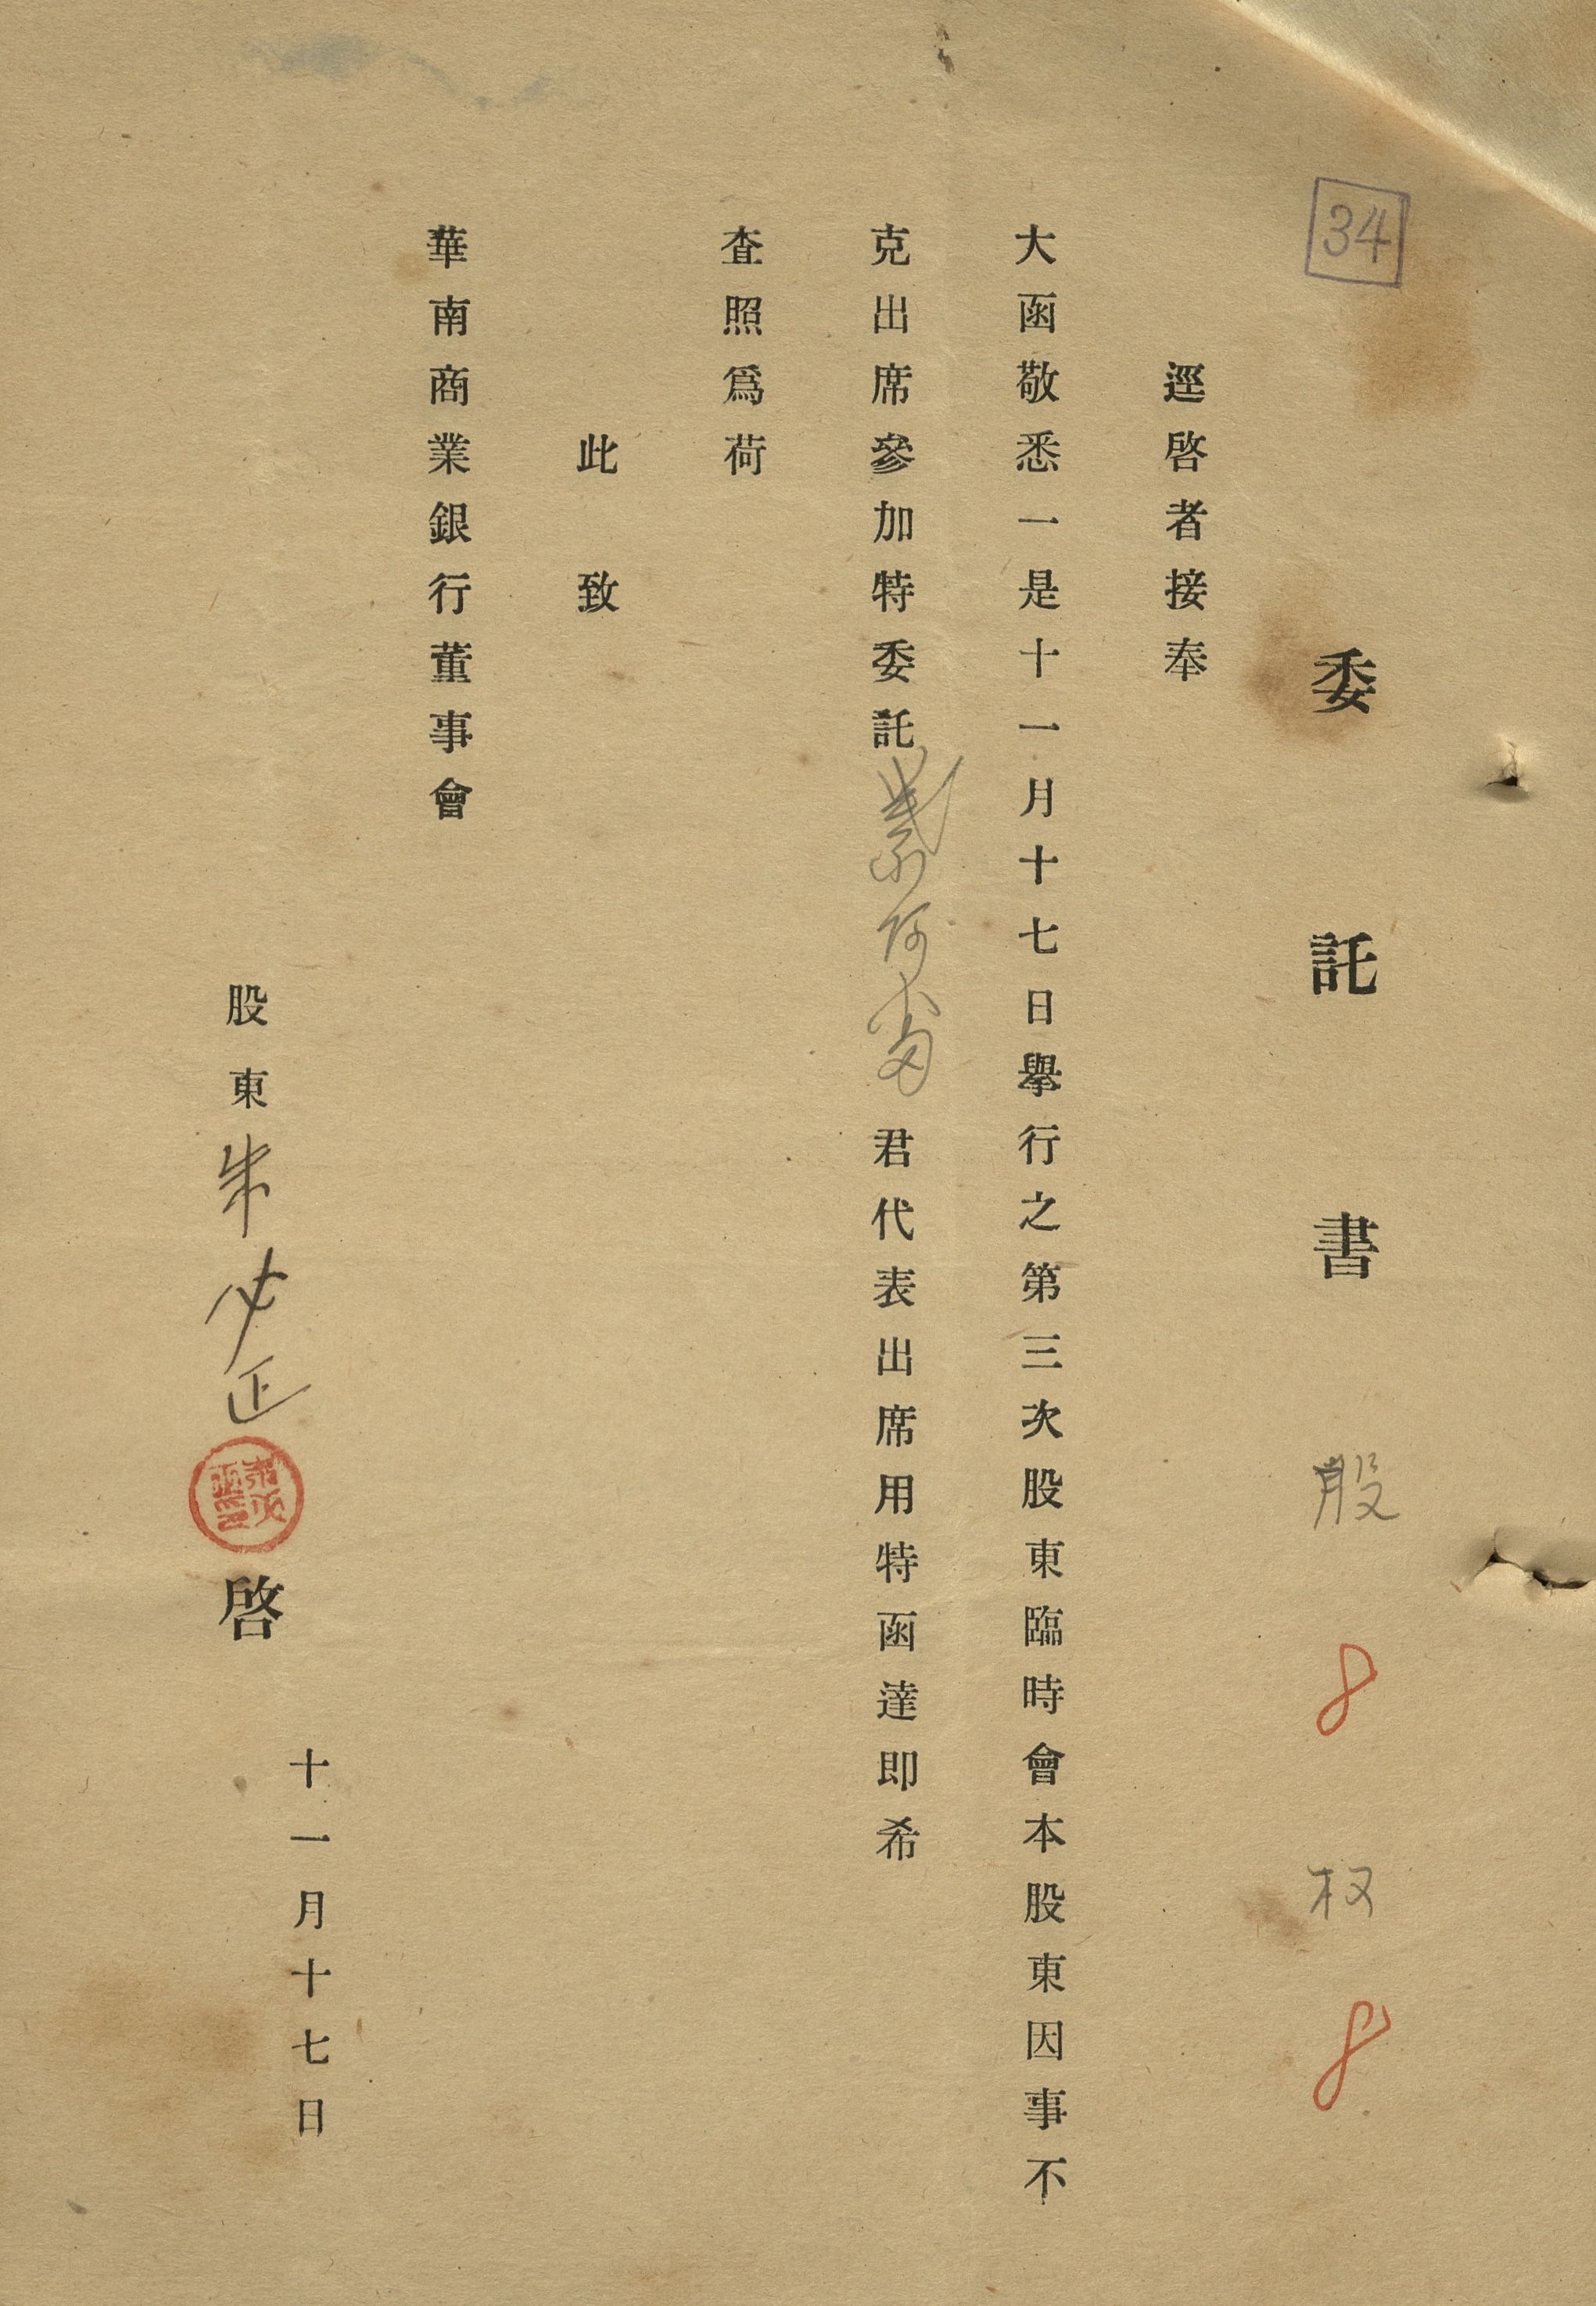 34
委託書 股 8 权 8
逕啓者接奉
大函敬悉一是十一月十七日舉行之第三次股東臨時會本股東因事不
克出席參加特委託阿君代表出席用特函達即希
査照爲荷
此致
華南商業銀行董事會
十一月十七日
股東朱必正啓